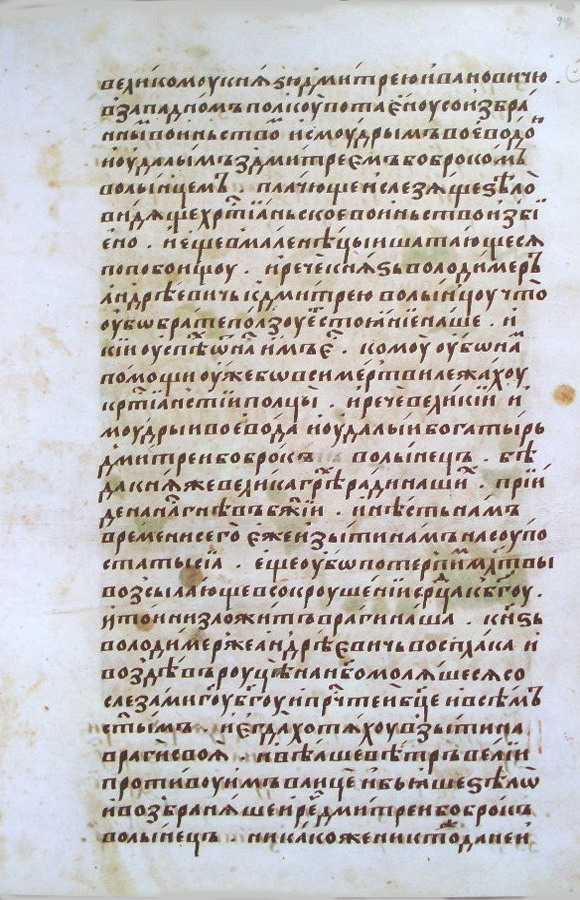 великомоу кнѧѕю дмитрею ивановичю
в западномъ полкоу потаеноу со избра
нныи воиньство и с моудрымъ воеводо
и оудалымъ з дмитреемъ боброкомъ
волынцемъ . плачюще и слезѧще ѕѣло
видѧще хртїаньское воиньство изби
ено . и еще в мале нѣцыи шатающесѧ
по побоищоу . и рече кнѧѕь володимеръ
андрѣевичь к дмитрею волынцоу что
оубѡ брате ползоуе стоѧнїе наше . и
кїи оуспѣѡ нам имъ е . комоу оубѡ на
помощи оуже бѡ вси мертви лежахоу
кртїанстїи полцы . и рече великїи и
моудрыи воевода и оудалыи богатырь
дмитреи боброкъ волынецъ . бѣ
да кнѧже велика грѣ ради наши . прїи
де на на гнѣвъ бжїи . и нѣсть намъ
времени сего еже изыти намъ на соупо
статы сїа . еще оубѡ потерпим млтвы
возсылающе в сокроушенїи ерца к бгоу .
и тои низложит враги наша . кнѕь
володимер же андрѣевичь восплака и
воздѣвъ роуцѣ на нбо молѧшесѧ со
слезами гоу бгоу и прчтеи бце и всѣмъ
стымъ . и егда хотѧхоу взыти на
враги своѧ . и вѣаше вѣтръ велїи
противоу имъ в лице и бьѧше ѕѣлѡ
и возбранѧше и ре дмитреи боброкъ
волынецъ . никакоже никто да неи